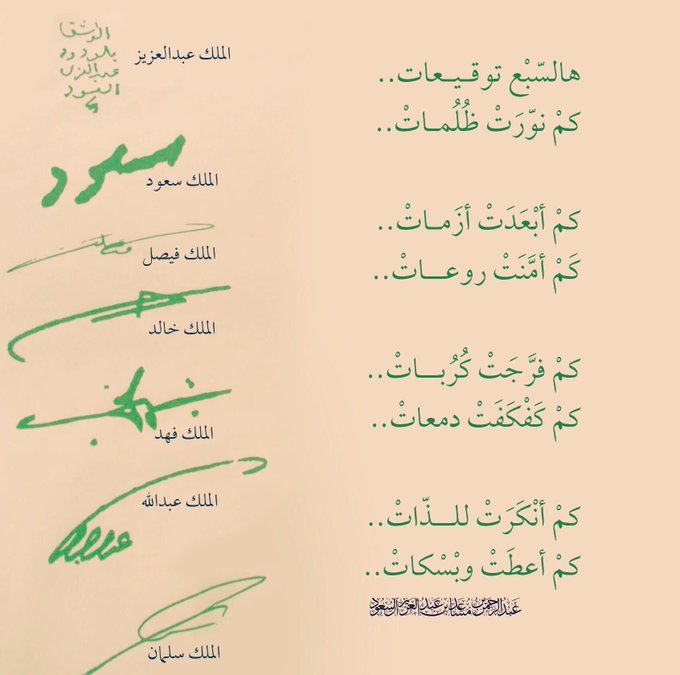 هالسّبْع توقـيـعات..
كمْ نوّرَتْ ظُلُمـاتْ..
كمْ أبْعَدَتْ أزَمـاتْ..
كَمْ أمَّنَتْ روعـــاتْ..
كمْ فرَّجَتْ كُرُبـــاتْ..
كمْ كَفْكَفَتْ دمعاتْ..
كمْ أنْكَرَتْ للــــذّاتْ..
كمْ أعطَتْ وبْسْكاتْ..
عبدالرحمن بن مساعد بن عبدالعزيز آل سعود
الملك عبدالعزيز
سعود
الملك سعود
الملك فيصل
الملك خالد
الملك فهد
الملك عبدالله
عبدالله
الملك سلمان